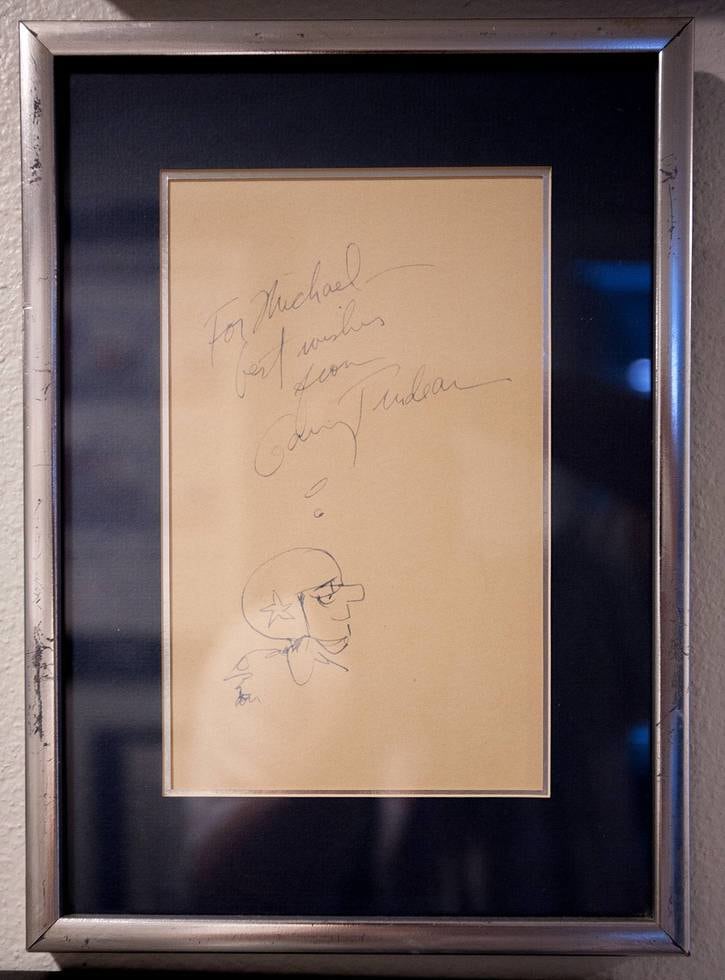 For Michael —
best wishes
from
Garry Trudeau